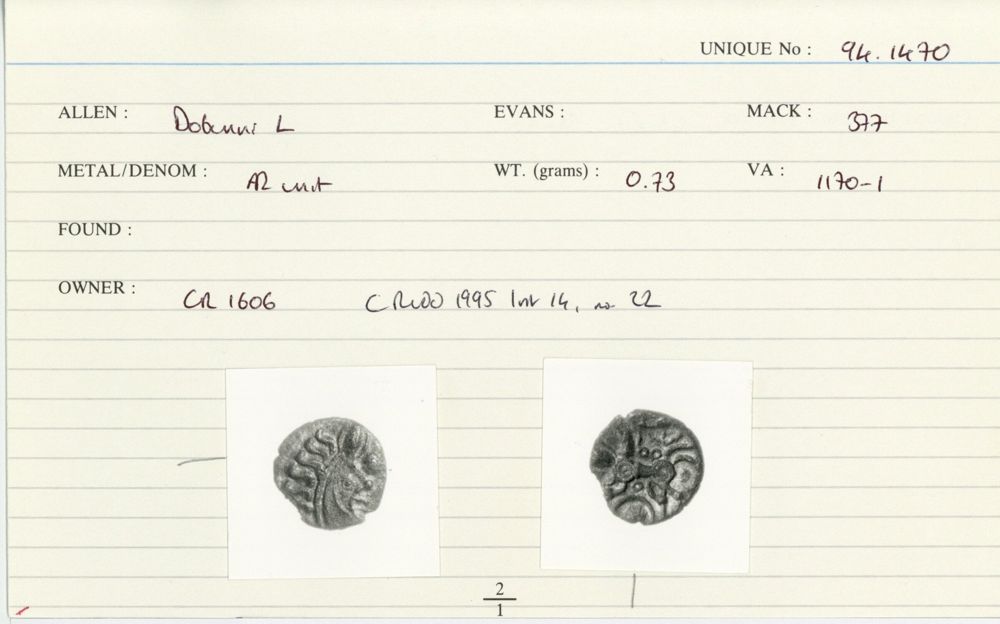 UNIQUE No : 94.1470
ALLEN : Dobunni L EVANS : MACK : 377
METAL/DENOM : AR unit WT. (grams) : 0.73 VA : 1170-1
FOUND :
OWNER : CR 1606 1995 14, no 22
2
1